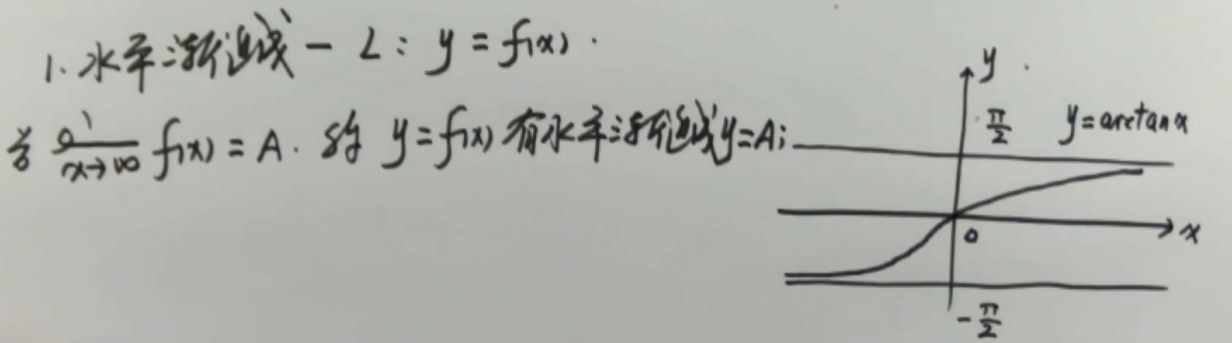 1. 水平渐近线 - L: y = f(x).
若 lim x→∞ f(x) = A. 则 y = f(x) 有水平渐近线 y = A;
y
π/2
y = arctan x
0
x
-π/2